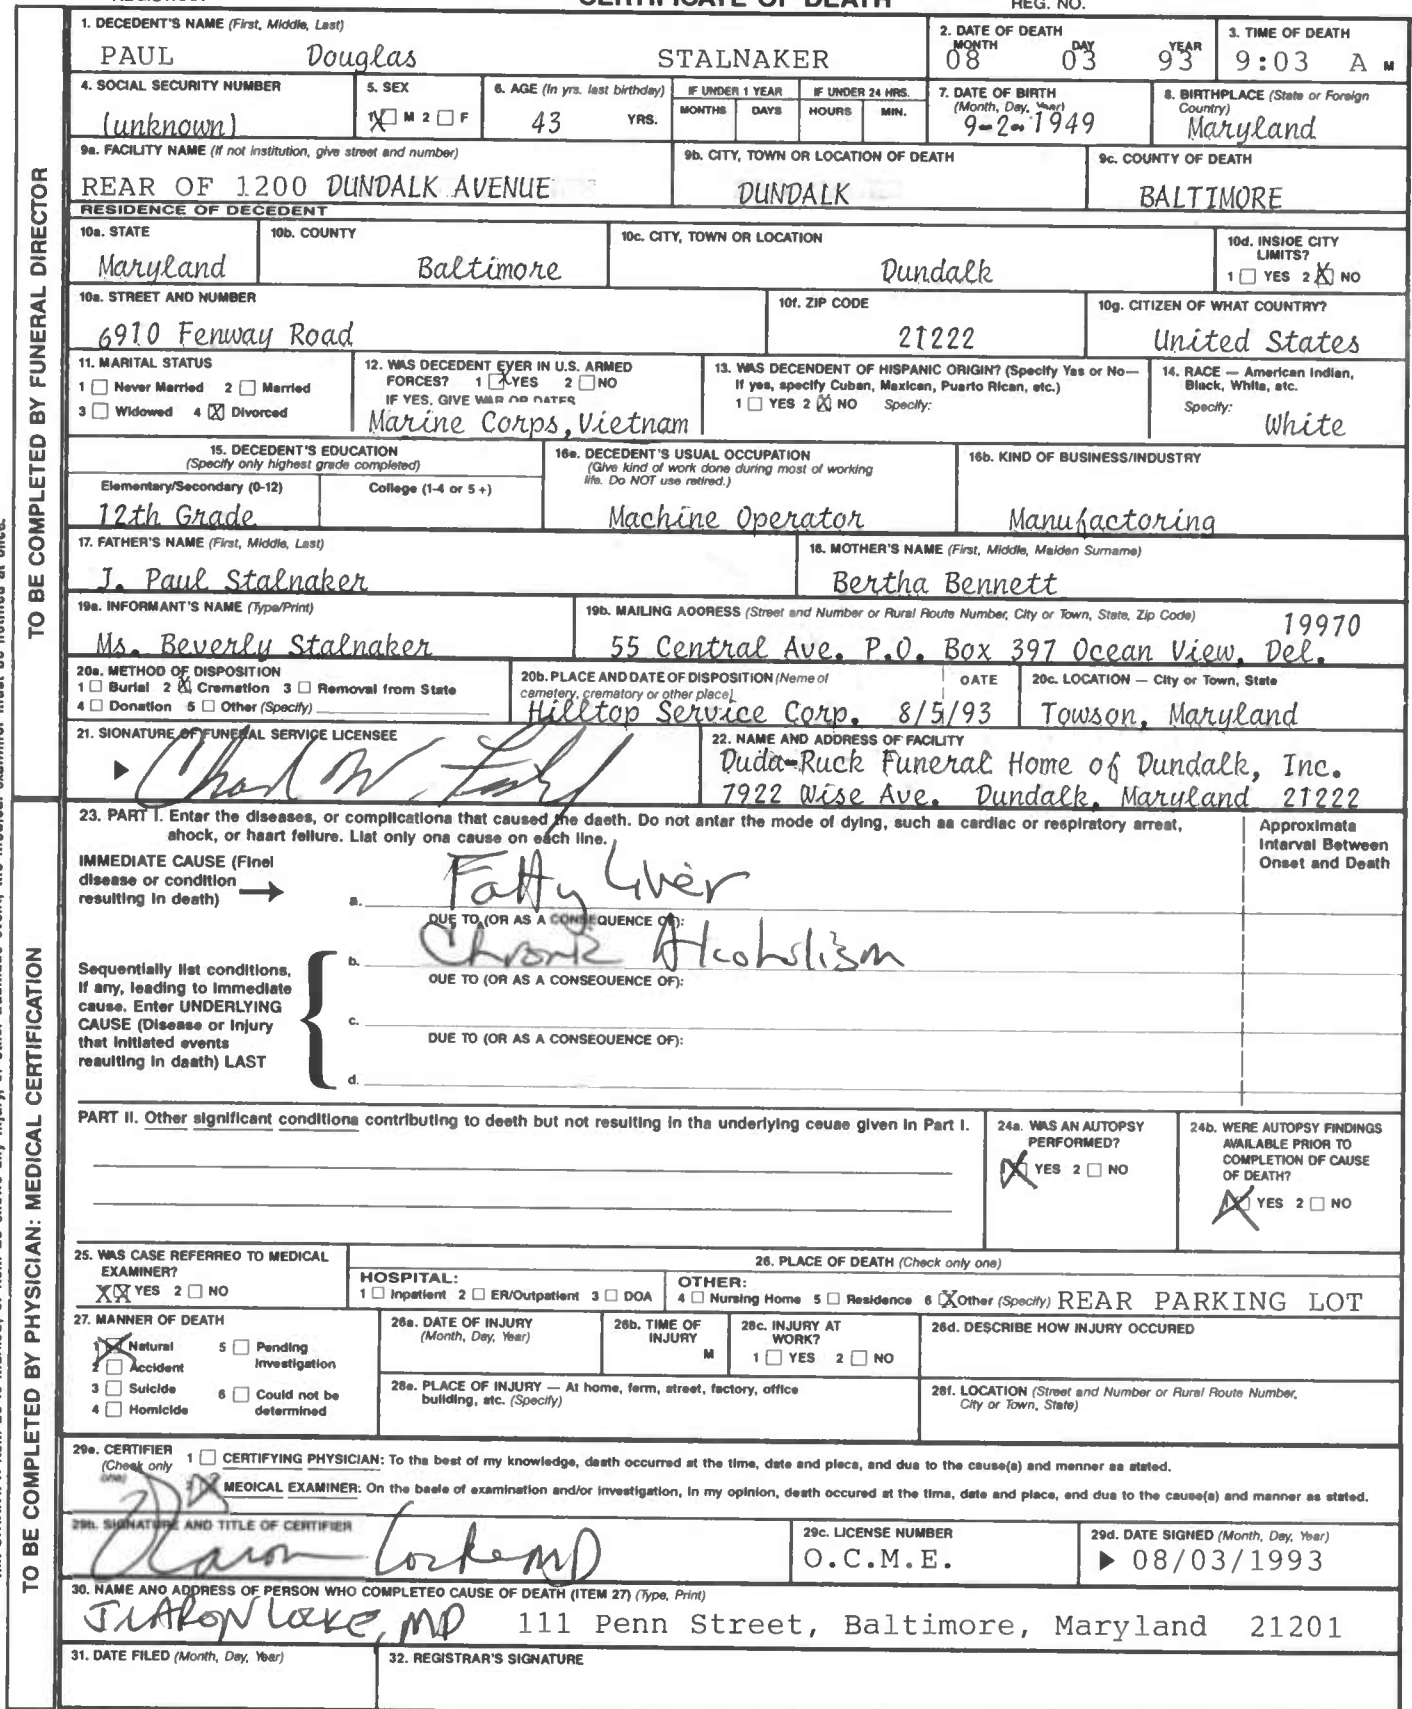 CERTIFICATE OF DEATH
REG. NO.
1. DECEDENT'S NAME (First, Middle, Last)
PAUL Douglas STALNAKER
2. DATE OF DEATH
MONTH DAY YEAR
08 03 93
3. TIME OF DEATH
9:03 A M
4. SOCIAL SECURITY NUMBER
(unknown)
5. SEX
1 X M 2 F
6. AGE (In yrs. last birthday)
43 YRS.
IF UNDER 1 YEAR
MONTHS DAYS
IF UNDER 24 HRS.
HOURS MIN.
7. DATE OF BIRTH
(Month, Day, Year)
9-2-1949
8. BIRTHPLACE (State or Foreign
Country)
Maryland
9a. FACILITY NAME (If not institution, give street and number)
REAR OF 1200 DUNDALK AVENUE
9b. CITY, TOWN OR LOCATION OF DEATH
DUNDALK
9c. COUNTY OF DEATH
BALTIMORE
RESIDENCE OF DECEDENT
10a. STATE
Maryland
10b. COUNTY
Baltimore
10c. CITY, TOWN OR LOCATION
Dundalk
10d. INSIDE CITY
LIMITS?
1 YES 2 X NO
10e. STREET AND NUMBER
6910 Fenway Road
10f. ZIP CODE
21222
10g. CITIZEN OF WHAT COUNTRY?
United States
11. MARITAL STATUS
1 Never Married 2 Married
3 Widowed 4 X Divorced
12. WAS DECEDENT EVER IN U.S. ARMED
FORCES? 1 X YES 2 NO
IF YES, GIVE WAR OR DATES
Marine Corps, Vietnam
13. WAS DECENDENT OF HISPANIC ORIGIN? (Specify Yes or No—
If yes, specify Cuban, Mexican, Puerto Rican, etc.)
1 YES 2 X NO Specify:
14. RACE — American Indian,
Black, White, etc.
Specify:
White
15. DECEDENT'S EDUCATION
(Specify only highest grade completed)
Elementary/Secondary (0-12) College (1-4 or 5+)
12th Grade
16a. DECEDENT'S USUAL OCCUPATION
(Give kind of work done during most of working
life. Do NOT use retired.)
Machine Operator
16b. KIND OF BUSINESS/INDUSTRY
Manufactoring
17. FATHER'S NAME (First, Middle, Last)
J. Paul Stalnaker
18. MOTHER'S NAME (First, Middle, Maiden Surname)
Bertha Bennett
19a. INFORMANT'S NAME (Type/Print)
Ms. Beverly Stalnaker
19b. MAILING ADDRESS (Street and Number or Rural Route Number, City or Town, State, Zip Code)
19970
55 Central Ave. P.O. Box 397 Ocean View, Del.
20a. METHOD OF DISPOSITION
1 Burial 2 X Cremation 3 Removal from State
4 Donation 5 Other (Specify)
20b. PLACE AND DATE OF DISPOSITION (Name of
cemetery, crematory or other place) DATE
Hilltop Service Corp. 8/5/93
20c. LOCATION — City or Town, State
Towson, Maryland
21. SIGNATURE OF FUNERAL SERVICE LICENSEE
22. NAME AND ADDRESS OF FACILITY
Duda-Ruck Funeral Home of Dundalk, Inc.
7922 Wise Ave. Dundalk, Maryland 21222
23. PART I. Enter the diseases, or complications that caused the death. Do not enter the mode of dying, such as cardiac or respiratory arrest,
shock, or heart failure. List only one cause on each line.
Approximate
Interval Between
Onset and Death
IMMEDIATE CAUSE (Final
disease or condition
resulting in death)
a. Fatty Liver
DUE TO (OR AS A CONSEQUENCE OF):
b. Chronic Alcoholism
DUE TO (OR AS A CONSEQUENCE OF):
c.
DUE TO (OR AS A CONSEQUENCE OF):
d.
Sequentially list conditions,
If any, leading to immediate
cause. Enter UNDERLYING
CAUSE (Disease or Injury
that initiated events
resulting in death) LAST
PART II. Other significant conditions contributing to death but not resulting in the underlying cause given in Part I.
24a. WAS AN AUTOPSY
PERFORMED?
1 X YES 2 NO
24b. WERE AUTOPSY FINDINGS
AVAILABLE PRIOR TO
COMPLETION OF CAUSE
OF DEATH?
1 X YES 2 NO
25. WAS CASE REFERRED TO MEDICAL
EXAMINER?
XX YES 2 NO
26. PLACE OF DEATH (Check only one)
HOSPITAL:
1 Inpatient 2 ER/Outpatient 3 DOA
OTHER:
4 Nursing Home 5 Residence 6 X Other (Specify) REAR PARKING LOT
27. MANNER OF DEATH
1 X Natural 5 Pending
2 Accident Investigation
3 Suicide 6 Could not be
4 Homicide determined
28a. DATE OF INJURY
(Month, Day, Year)
28b. TIME OF
INJURY
M
28c. INJURY AT
WORK?
1 YES 2 NO
28d. DESCRIBE HOW INJURY OCCURED
28e. PLACE OF INJURY — At home, farm, street, factory, office
building, etc. (Specify)
28f. LOCATION (Street and Number or Rural Route Number,
City or Town, State)
29a. CERTIFIER
(Check only
one)
1 CERTIFYING PHYSICIAN: To the best of my knowledge, death occurred at the time, date and place, and due to the cause(s) and manner as stated.
X MEDICAL EXAMINER: On the basis of examination and/or investigation, in my opinion, death occured at the time, date and place, and due to the cause(s) and manner as stated.
29b. SIGNATURE AND TITLE OF CERTIFIER
29c. LICENSE NUMBER
O.C.M.E.
29d. DATE SIGNED (Month, Day, Year)
08/03/1993
30. NAME AND ADDRESS OF PERSON WHO COMPLETED CAUSE OF DEATH (ITEM 27) (Type, Print)
MD 111 Penn Street, Baltimore, Maryland 21201
31. DATE FILED (Month, Day, Year)
32. REGISTRAR'S SIGNATURE
TO BE COMPLETED BY FUNERAL DIRECTOR
TO BE COMPLETED BY PHYSICIAN: MEDICAL CERTIFICATION